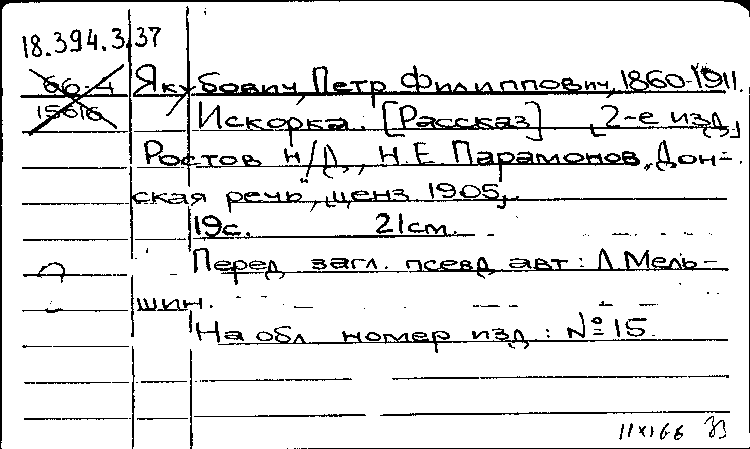 18.394.3.37
66-4
15616
Якубович, Петр Филиппович, 1860-1911.
Искорка. [Рассказ] [2-е изд.]
Ростов н/Д., Н.Е. Парамонов, "Дон-
ская речь", ценз. 1905,
19с. 21см.
Перед загл. псевд. авт: Л. Мель-
шин.
На обл. номер изд: №15.
11XI66